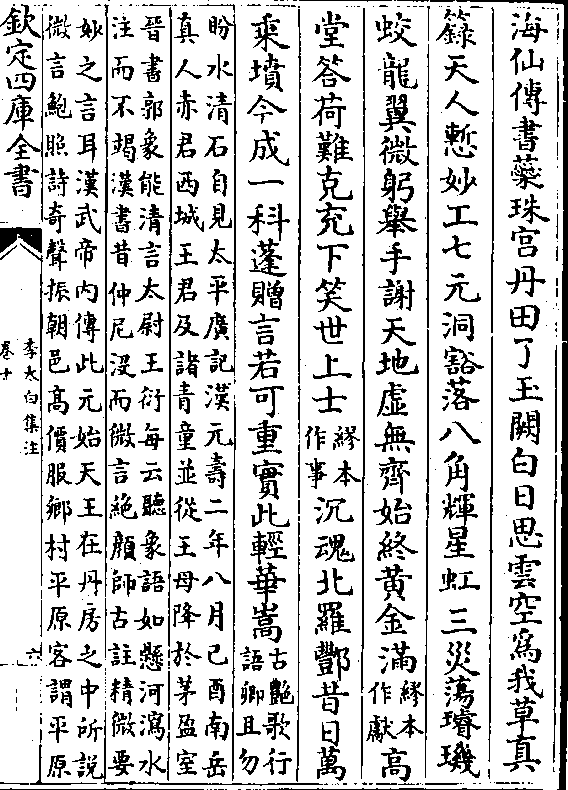 海仙傳書蘂珠宫丹田了玉闕白日思雲空為我草真
籙天人慙妙工七元洞豁落八角輝星虹三災蕩璿璣
蛟龍翼微躬舉手謝天地虚無齊始終黄金滿繆本作獻高
堂答荷難克充下笑世上士繆本作事沉魂北羅酆昔日萬
乘墳今成一科蓬贈言若可重實此輕華嵩古艷歌行語卿且勿
盼水清石自見太平廣記漢元壽二年八月己酉南岳
真人赤君西城王君及諸青童並從王母降於茅盈室
晉書郭象能清言太尉王衍每云聽象語如懸河瀉水
注而不竭漢書昔仲尼没而微言絶顔師古註精微要
妙之言耳漢武帝内傳此元始天王在丹房之中所説
微言鮑照詩奇聲振朝邑髙價服鄉村平原客謂平原
欽定四庫全書
李太白集注
卷十
六